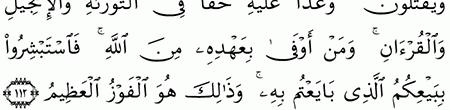 وَيُقْتَلُونَ ۖ وَعْدًا عَلَيْهِ حَقًّا فِى ٱلتَّوْرَىٰةِ وَٱلْإِنجِيلِ
وَٱلْقُرْءَانِ ۚ وَمَنْ أَوْفَىٰ بِعَهْدِهِۦ مِنَ ٱللَّهِ ۚ فَٱسْتَبْشِرُوا۟
بِبَيْعِكُمُ ٱلَّذِى بَايَعْتُم بِهِۦ ۚ وَذَٰلِكَ هُوَ ٱلْفَوْزُ ٱلْعَظِيمُ ١١٣